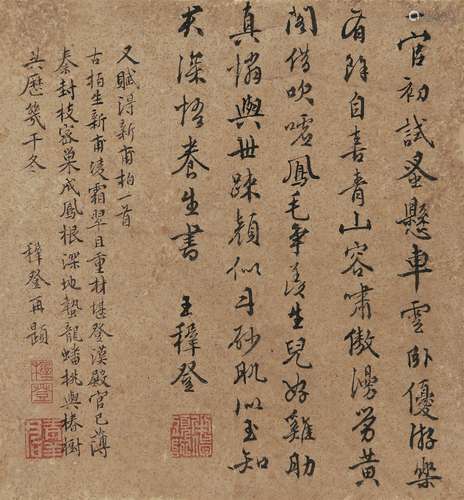 一官初試蚤懸車雲臥優游樂
有餘自喜青山容嘯傲漫勞黃
閣借吹噓鳳毛爭羨生兒好雞肋
真憐與世疎顏似丹砂肌似玉知
君深悟養生書 王穉登
又賦得新甫柏一首
古柏生新甫凌霜翠且重材堪登漢殿官已薄
秦封枝密巢成鳳根深地蟄龍蟠桃與椿樹
共歷幾千冬
穉登再題